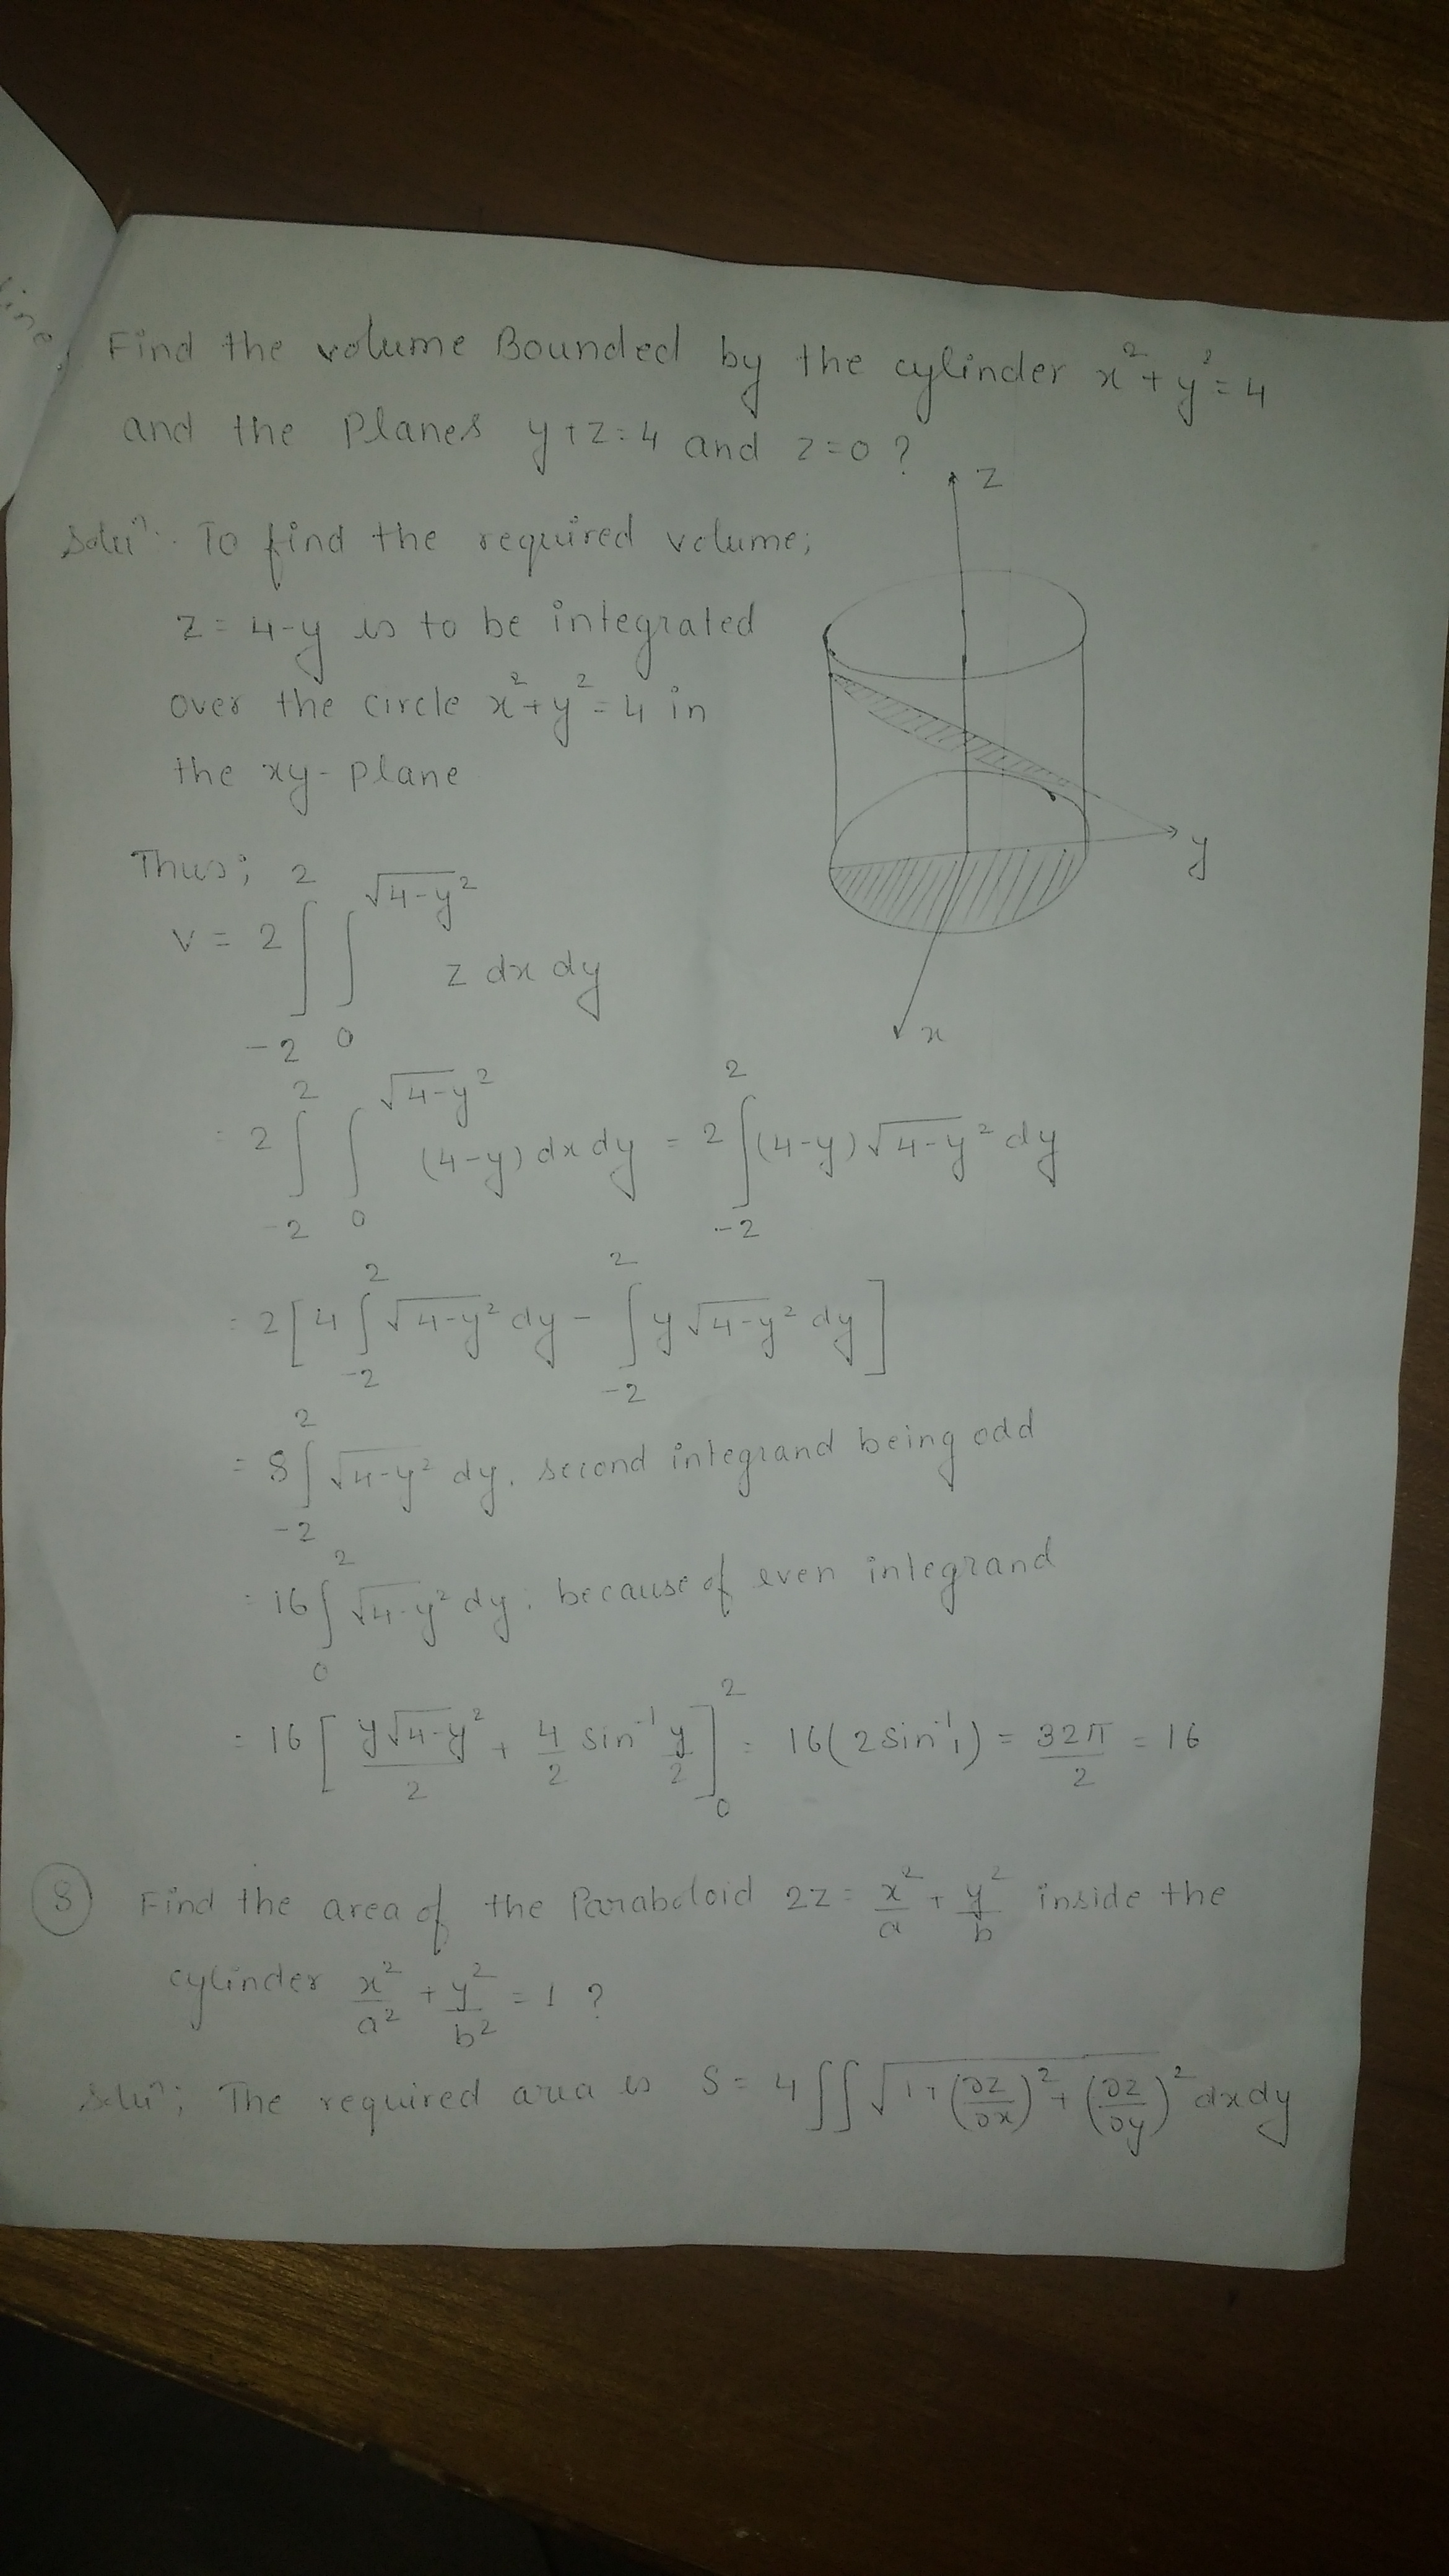 Find the volume Bounded by the cylinder x²+y²=4
and the Planes y+z=4 and z=0?
Solun: To find the required volume;
z=4-y is to be integrated
over the circle x²+y²=4 in
the xy-plane
z
y
x
Thus;
V = 2∫_{-2}^{2} ∫_{0}^{√4-y²} z dx dy
= 2∫_{-2}^{2} ∫_{0}^{√4-y²} (4-y) dx dy = 2∫_{-2}^{2} (4-y)√4-y² dy
= 2[4∫_{-2}^{2} √4-y² dy - ∫_{-2}^{2} y√4-y² dy]
= 8∫_{-2}^{2} √4-y² dy, second integrand being odd
= 16∫_{0}^{2} √4-y² dy; because of even integrand
= 16[y√4-y²/2 + 4/2 sin⁻¹ y/2]_{0}^{2} = 16(2sin⁻¹1) = 32π/2 = 16
8 Find the area of the Paraboloid 2z = x²/a + y²/b inside the
cylinder x²/a² + y²/b² = 1 ?
Solun; The required area is S = 4∫∫√1+(∂z/∂x)²+(∂z/∂y)² dxdy